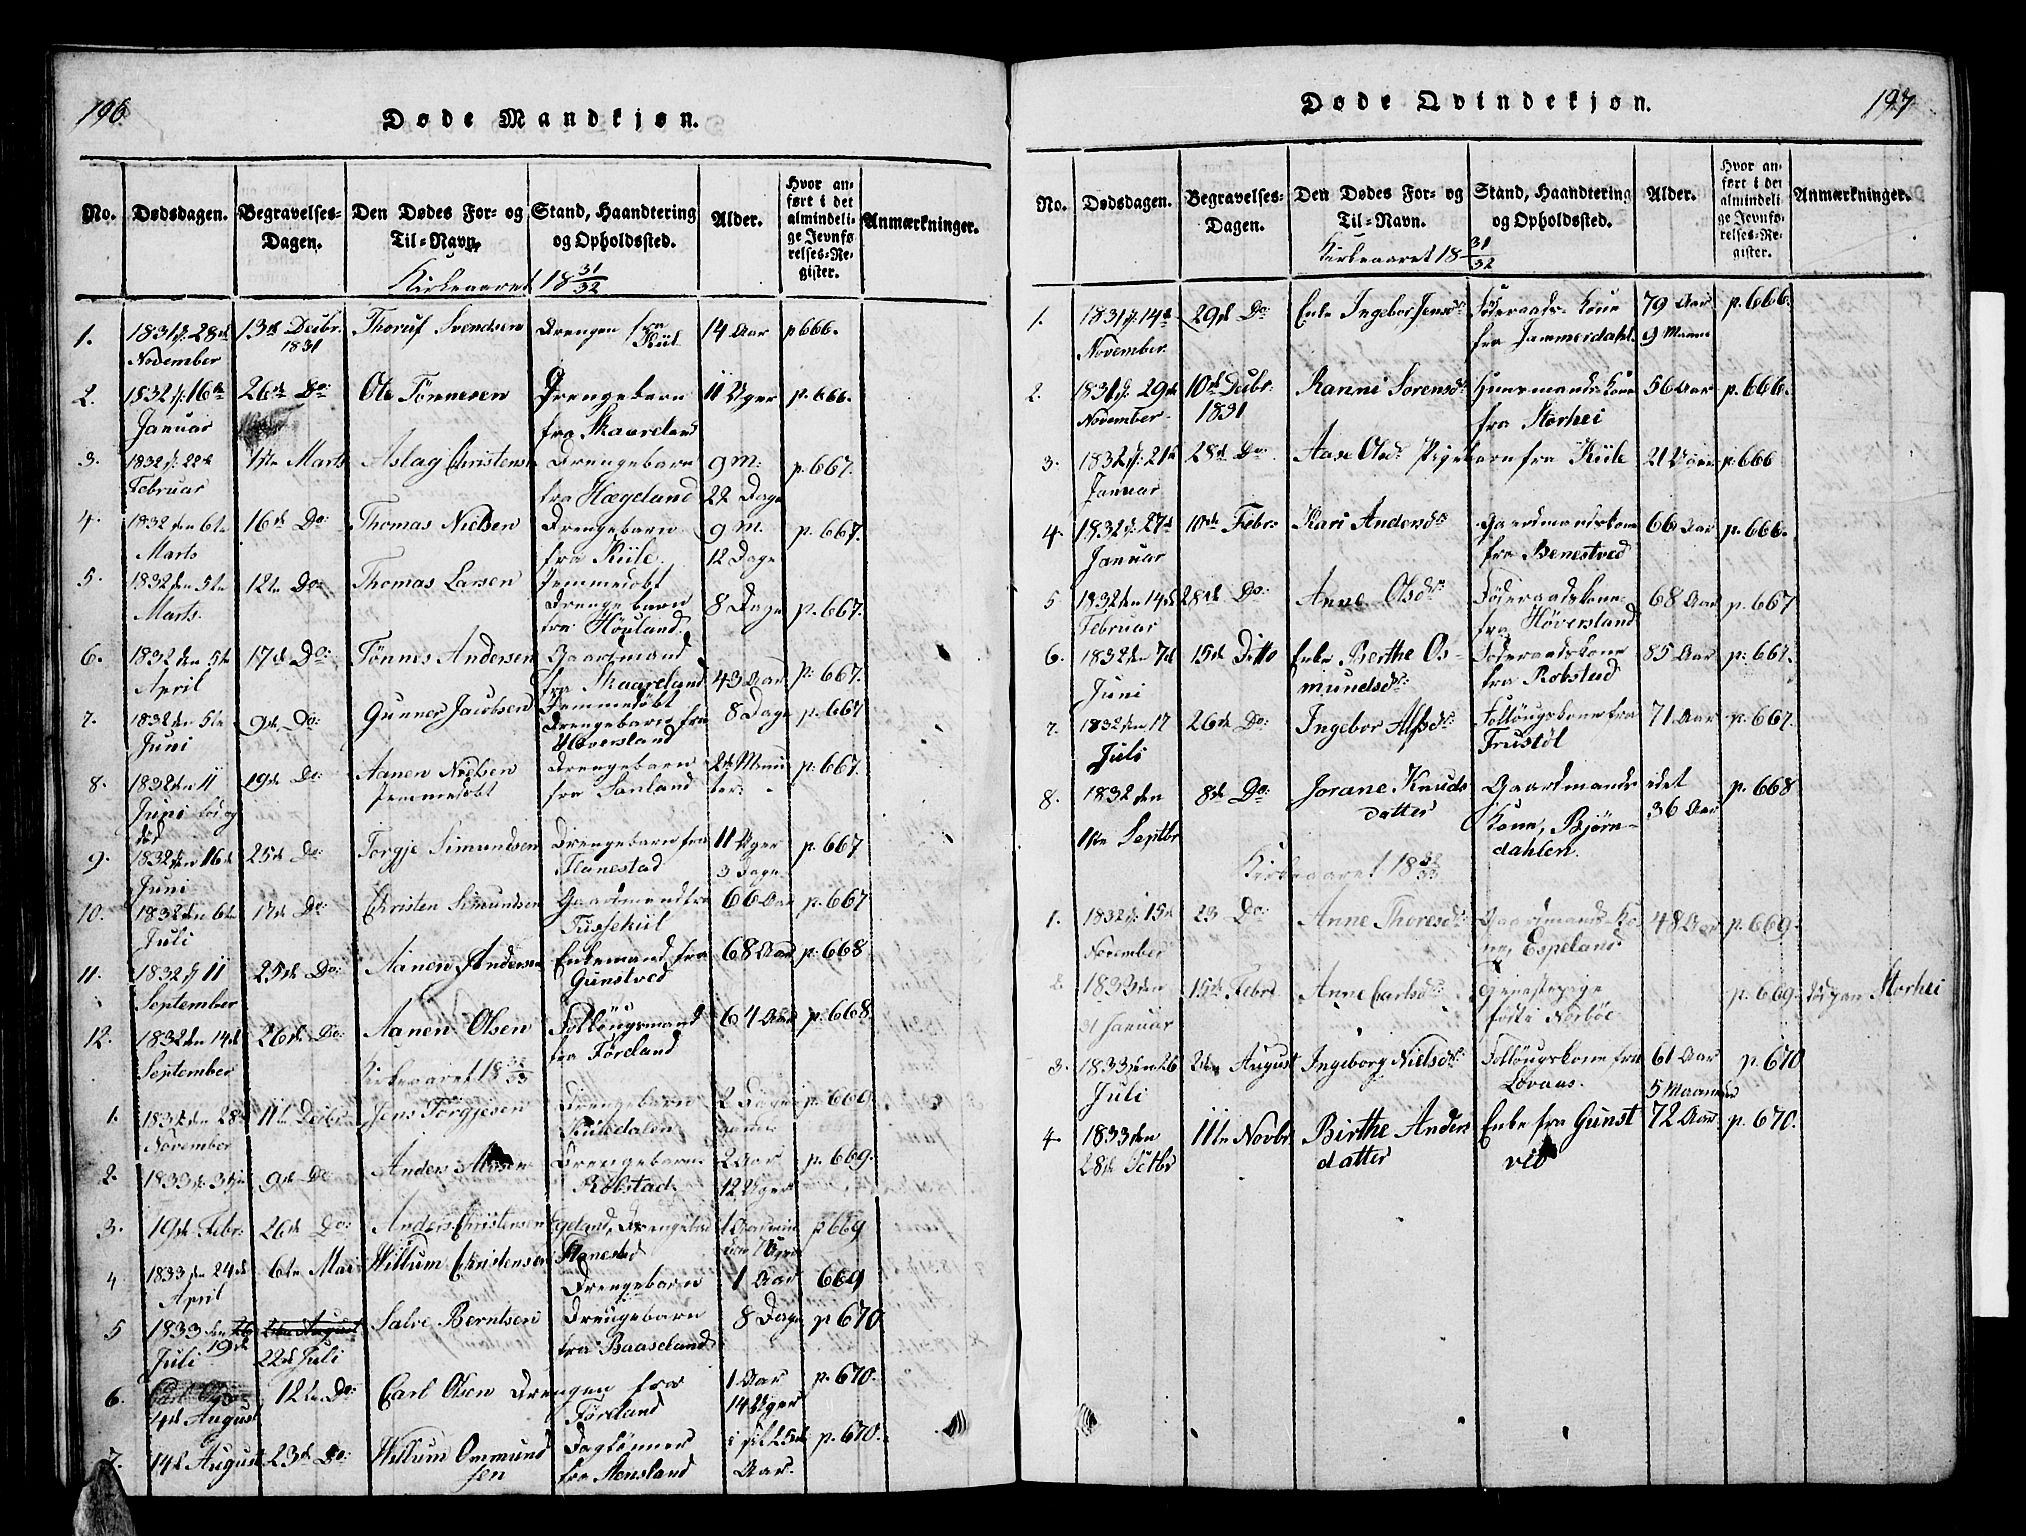 196.
Døde Mandkjøn.
No.
Dødsdagen.
Begravelses-Dagen.
Den Dødes For- og Til-Navn.
Stand, Haandtering og Opholdssted.
Alder.
Hvor anført i det almindelige Jevnførelses-Register.
Anmærkninger.
Kirkeaaret 18 31/32
1. 1831 d. 28de November 13de Decbr. 1831 Thoruf Svendsen Drengen fra Kiil 14 Aar p. 666.
2. 1832 d. 16de Januar 26de Do Ole Tønnesen Drengebarn fra Skaareland 11 Uger p. 666.
3. 1832 d. 22de Februar 17de Marts Aslag Christens. Drengebarn fra Hægeland 9 M. 22 Dage p. 667.
4. 1832 den 6te Marts 16de Do Thomas Nielsen Drengebarn fra Kiile 9 M. 12 Dage p. 667.
5. 1832 den 5te Marts. 12te Do: Thomas Larsen Hjemmedøbt Drengebarn fra Höuland. 8 Dage p. 667.
6. 1832 den 5te April 17de Do: Tönnes Andersen Gaardmand fra Skaareland 43 Aar p. 667.
7. 1832 den 5te Juni 9de Do: Gunner Jacobsen Hjemmedöbt Drengebarn fra Höversland 8 Dage p. 667
8. 1832 den 11 Juni 19de Do Aanen Nielsen Hjemmedöbt Drengebarn fra Sanland p. 667.
9. 1832 den 16de Juni 25de Do Torgje Simundsen Drengebarn fra Flanestad 11 Uger 3 Dage p. 667.
10. 1832 den 6te Juli 17de Do: Christen Simundsen Gaardmand fra Tussekiil 66 Aar p. 667
11. 1832 d. 11 September 25de Do: Aanen Andersen Enkemand fra Gunstved 68 Aar p. 668
12. 1832 den 14de September 26de Do: Aanen Olsen Follougsmand fra Föreland 64 Aar p. 668.
Kirkeaaret 18 32/33
1. 1832 den 28de November 11te Decbr. Jens Torgjesen Drengebarn 2 Dage p. 669.
2. 1833 9de Do Anders Drengebarn Robstad. 2 Aar 12 Uger p. 669.
3. 19de Febr. 26de Do: Anders Christensen p. 669
4 1833 den 24de April 6te Mai Willum Christensen Flanestad Drengebarn 1 Aar 669
5 1833 den 26 Juli 19de 2den August 22de Juli Salve Berntsen Drengebarn fra Baaseland 8 Dage p. 670.
6. Carl 14de August 12te Do: Carl Olsen Drengen fra Föreland 1 Aar 14 Uger p. 670.
7. 14de August 23de Do: Willum Ommundsen fra Stensland Aar. p. 670.
197
Døde Qvindekjøn.
No.
Dødsdagen.
Begravelses-Dagen.
Den Dødes For- og Til-Navn.
Stand, Haandtering og Opholdssted.
Alder.
Hvor anført i det almindelige Jevnførelses-Register.
Anmærkninger.
Kirkeaaret 18 31/32
1. 1831 d. 14de November. 29de Do Enke Ingebor Jensdr. Föderaads-Kone fra Jammerdahl. 79 Aar 9 Maaneder p. 666.
2. 1831 d. 29de November. 10de Decbr. 1831 Ranni Sorensdr. Huusmands Kone fra Storhei 56 Aar p. 666.
3. 1832 d. 21de Januar 28de Do. Aase Olsdr. Pigebarn fra Kiile p. 666
4. 1832 d. 27de Januar 10de Febr. Kari Andersdr. Gaardmandskone fra Benestved 66 Aar p. 666.
5 1832 den 14de Februar 28de Do: Anne Olsdr. Föderaadskone fra Höversland 68 Aar p. 667
6. 1832 den 7de Juni 15de Ditto Enke Berthe Osmundsdr. Föderaadskone fra Robstad 85 Aar p. 667.
7. 1832 den 17 Juli 26de Do: Ingebor Alfsdr. Follougskone fra Trustöl 71 Aar p. 667.
8. 1832 den 11te Septbr 8de Do: Jorane Knudsdatter Gaardmands Kone, Bjørndahlen. 36 Aar p. 668
Kirkeaaret 18 32/33
1. 1832 d. 15de November 23 Do: Anne Thoresdr. Gaardmands Kone, Espeland 48 Aar p. 669.
2. 1833 den 31 Januar 15de Febr. Anne Carlsdr. p. 669. Storhei
3. 1833 den 26 Juli 2den August Ingeborg Nielsdr. Follougskone fra Lovaas. 61 Aar 5 Maaneder p. 670
4. 1833 den 28de 11te Novbr. Birthe Andersdatter Enke fra Gunstved 72 Aar p. 670.